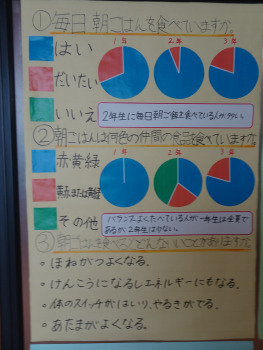 ①毎日朝ごはんを食べていますか。
1年 2年 3年
はい
だいたい
いいえ
2年生に毎日朝ご飯を食べている人が少ない。
②朝ごはんは何色の仲間の食品を食べていますか。
1年 2年 3年
赤黄緑
その他
バランスよくたべている人が一年生は全員で
あるが2年生は少ない。
③朝ごはんを食べるとどんないいことがありますか。
。ほねがつよくなる。
。けんこうになるしエネルギーにもなる。
。体のスイッチがはいり、やるきがでる。
。あたまがよくなる。